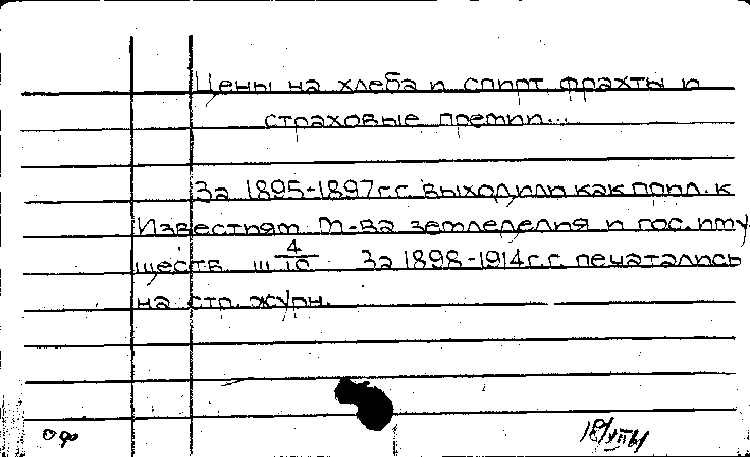 Цены на хлеба и спирт, фрахты и
страховые премии...
За 1895-1897г.г. выходили как прил. к
Известиям М-ва земледелия и гос. иму
ществ. Ш 4/10 За 1898-1914г.г. печатались
на стр. журн.
оф